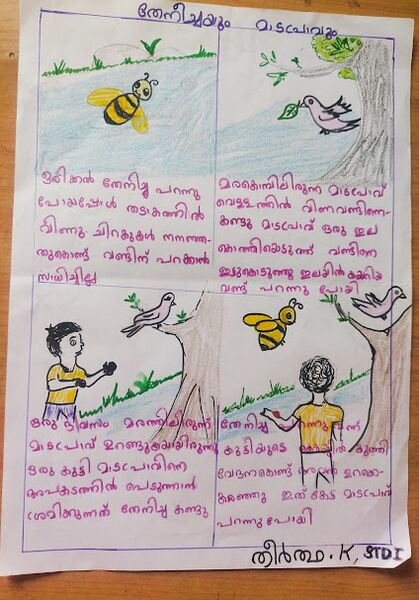 തേനീച്ചയും മാടപ്രാവും
ഒരിക്കൽ തേനീച്ച പറന്നു
പോയപ്പോൾ തടാകത്തിൽ
വീണു. ചിറകുകൾ നനഞ്ഞ-
തുകൊണ്ട് വണ്ടിന് പറക്കാൻ
സാധിച്ചില്ല
മരക്കൊമ്പിലിരുന്ന മാടപ്രാവ്
വെള്ളത്തിൽ വീണവണ്ടിനെ-
കണ്ടു മാടപ്രാവ് ഒരു ഇല
കൊത്തിയെടുത്ത് വണ്ടിനെ
ഇട്ടുകൊടുത്തു ഇലയിൽ കയറിയ
വണ്ട് പറന്നു പോയി
ഒരു ദിവസം മരത്തിലിരുന്ന്
മാടപ്രാവ് ഉറങ്ങുകയായിരുന്നു
ഒരു കുട്ടി മാടപ്രാവിനെ
അപകടത്തിൽ പെടുത്താൻ
ശ്രമിക്കുന്നത് തേനീച്ച കണ്ടു
തേനീച്ച പറന്നു വന്ന്
കുട്ടിയുടെ കുത്തി
വേദനകൊണ്ട് അവൻ ഉറക്കെ-
കരഞ്ഞു ഇത് കേട്ട മാടപ്രാവ്
പറന്നു പോയി
തീർത്ഥ . K, STD I